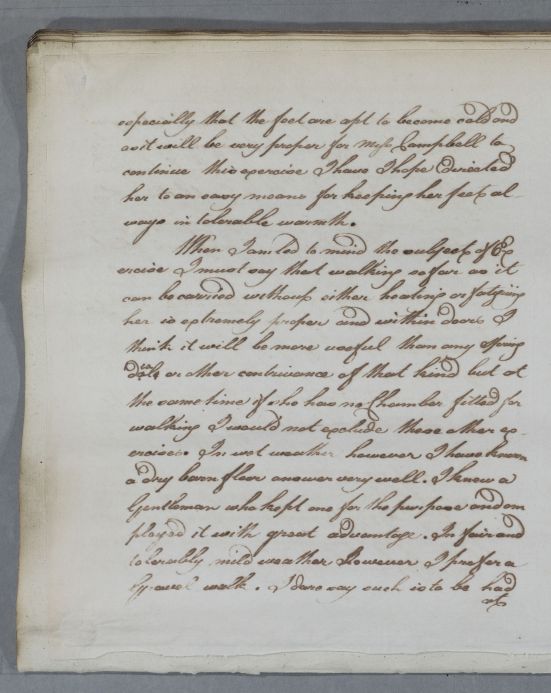 especially that the feet are apt to become cold and
as it will be very proper for Miss Campbell to
continue this exercise I have I hope Directed
her to an easy means for keeping her feet al-
ways in tolerable warmth.
When I am led to mind the subject of Ex
ercise I must say that walking so far as it
can be carried without either heating or fatiguing
her is extremely proper and within doors I
think it will be more useful than any spring
or other contrivance of that kind but at
the same time if she has no Chamber fitted for
walking I would not exclude these other ex-
ercises. In wet weather however I have known
a dry barn floor answer very well. I knew a
Gentleman who kept one for the purpose and em
ployed it with great advantage. In fair and
tolerably mild weather However I prefer a
Gravel walk. I dare say such is to be had
at